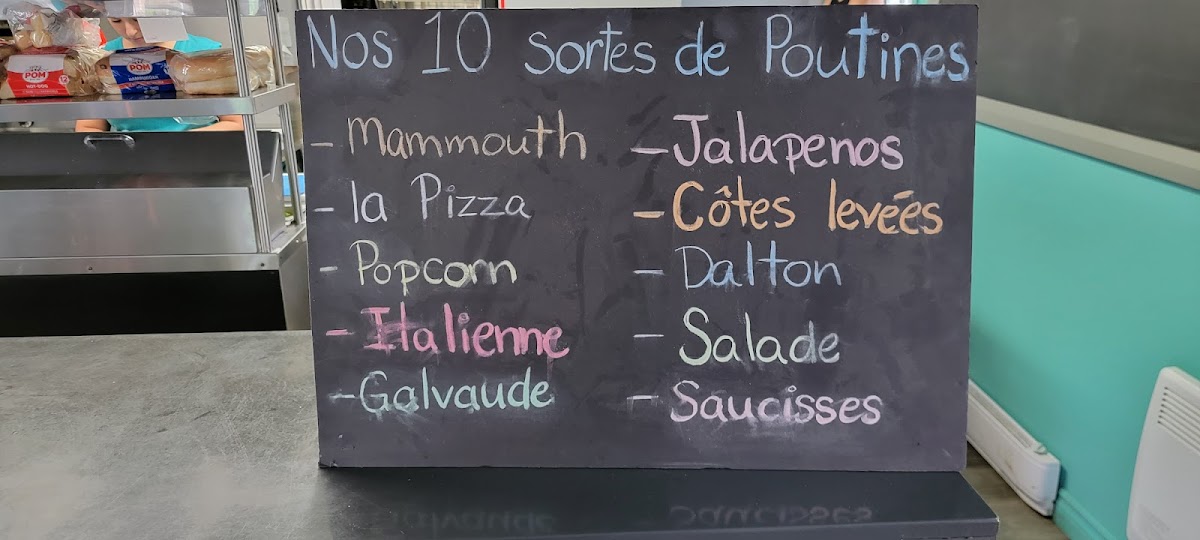 Nos 10 sortes de Poutines
- Mammouth
- la Pizza
- Popcorn
- Italienne
- Galvaude
- Jalapenos
- Côtes levées
- Dalton
- Salade
- Saucisses
POM
HOT-DOG
POM
HAMBURGER